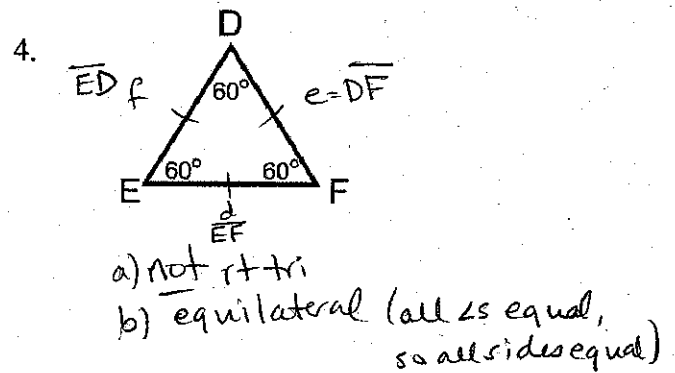 4.
D
ED f
60°
e=DF
60°
60°
E
F
d
EF
a) not rt tri
b) equilateral (all ∠s equal,
so all sides equal)